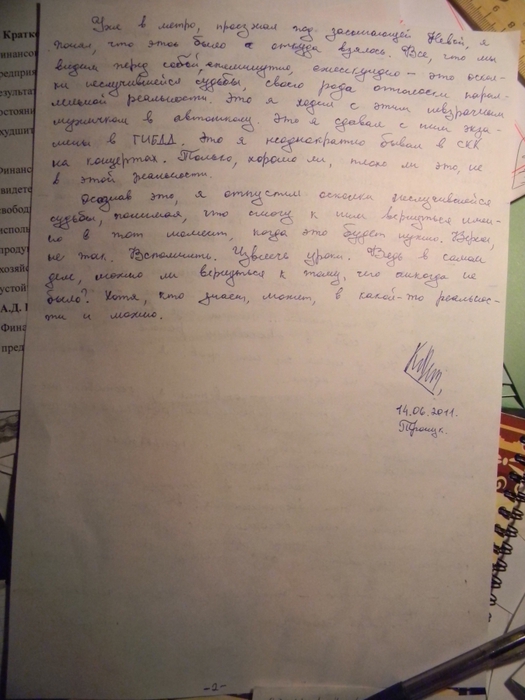 Уже в метро, проезжая под засыпающей Невой, я
понял, что это было и откуда взялось. Все, что мы
видим перед собой, ежеминутно, ежесекундно – это оскол-
ки неслучившейся судьбы, своего рода отголоски парал-
лельной реальности. Это я ходил с этим невзрачным
мужичком в автошколу. Это я сдавал с ним экза-
мены в ГИБДД. Это я неоднократно бывал в СКК
на концертах. Только, хорошо ли, плохо ли это, не
в этой реальности.
Осознав это, я отпустил осколки неслучившейся
судьбы, понимая, что смогу к ним вернуться имен-
но в тот момент, когда это будет нужно. Вернее,
не так. Вспомнить. Извлечь уроки. Ведь в самом
деле, можно ли вернуться к тому, чего никогда не
было? Хотя, кто знает, может, в какой-то реальнос-
ти и можно.
14.06.2011.
Троицк.
-2-
Кратк
инансов
редприя
езульта
остояни
худшит
Финанс
видете
свобод
исполь
продук
хозяйс
устой
А.Д.
Фина
пред